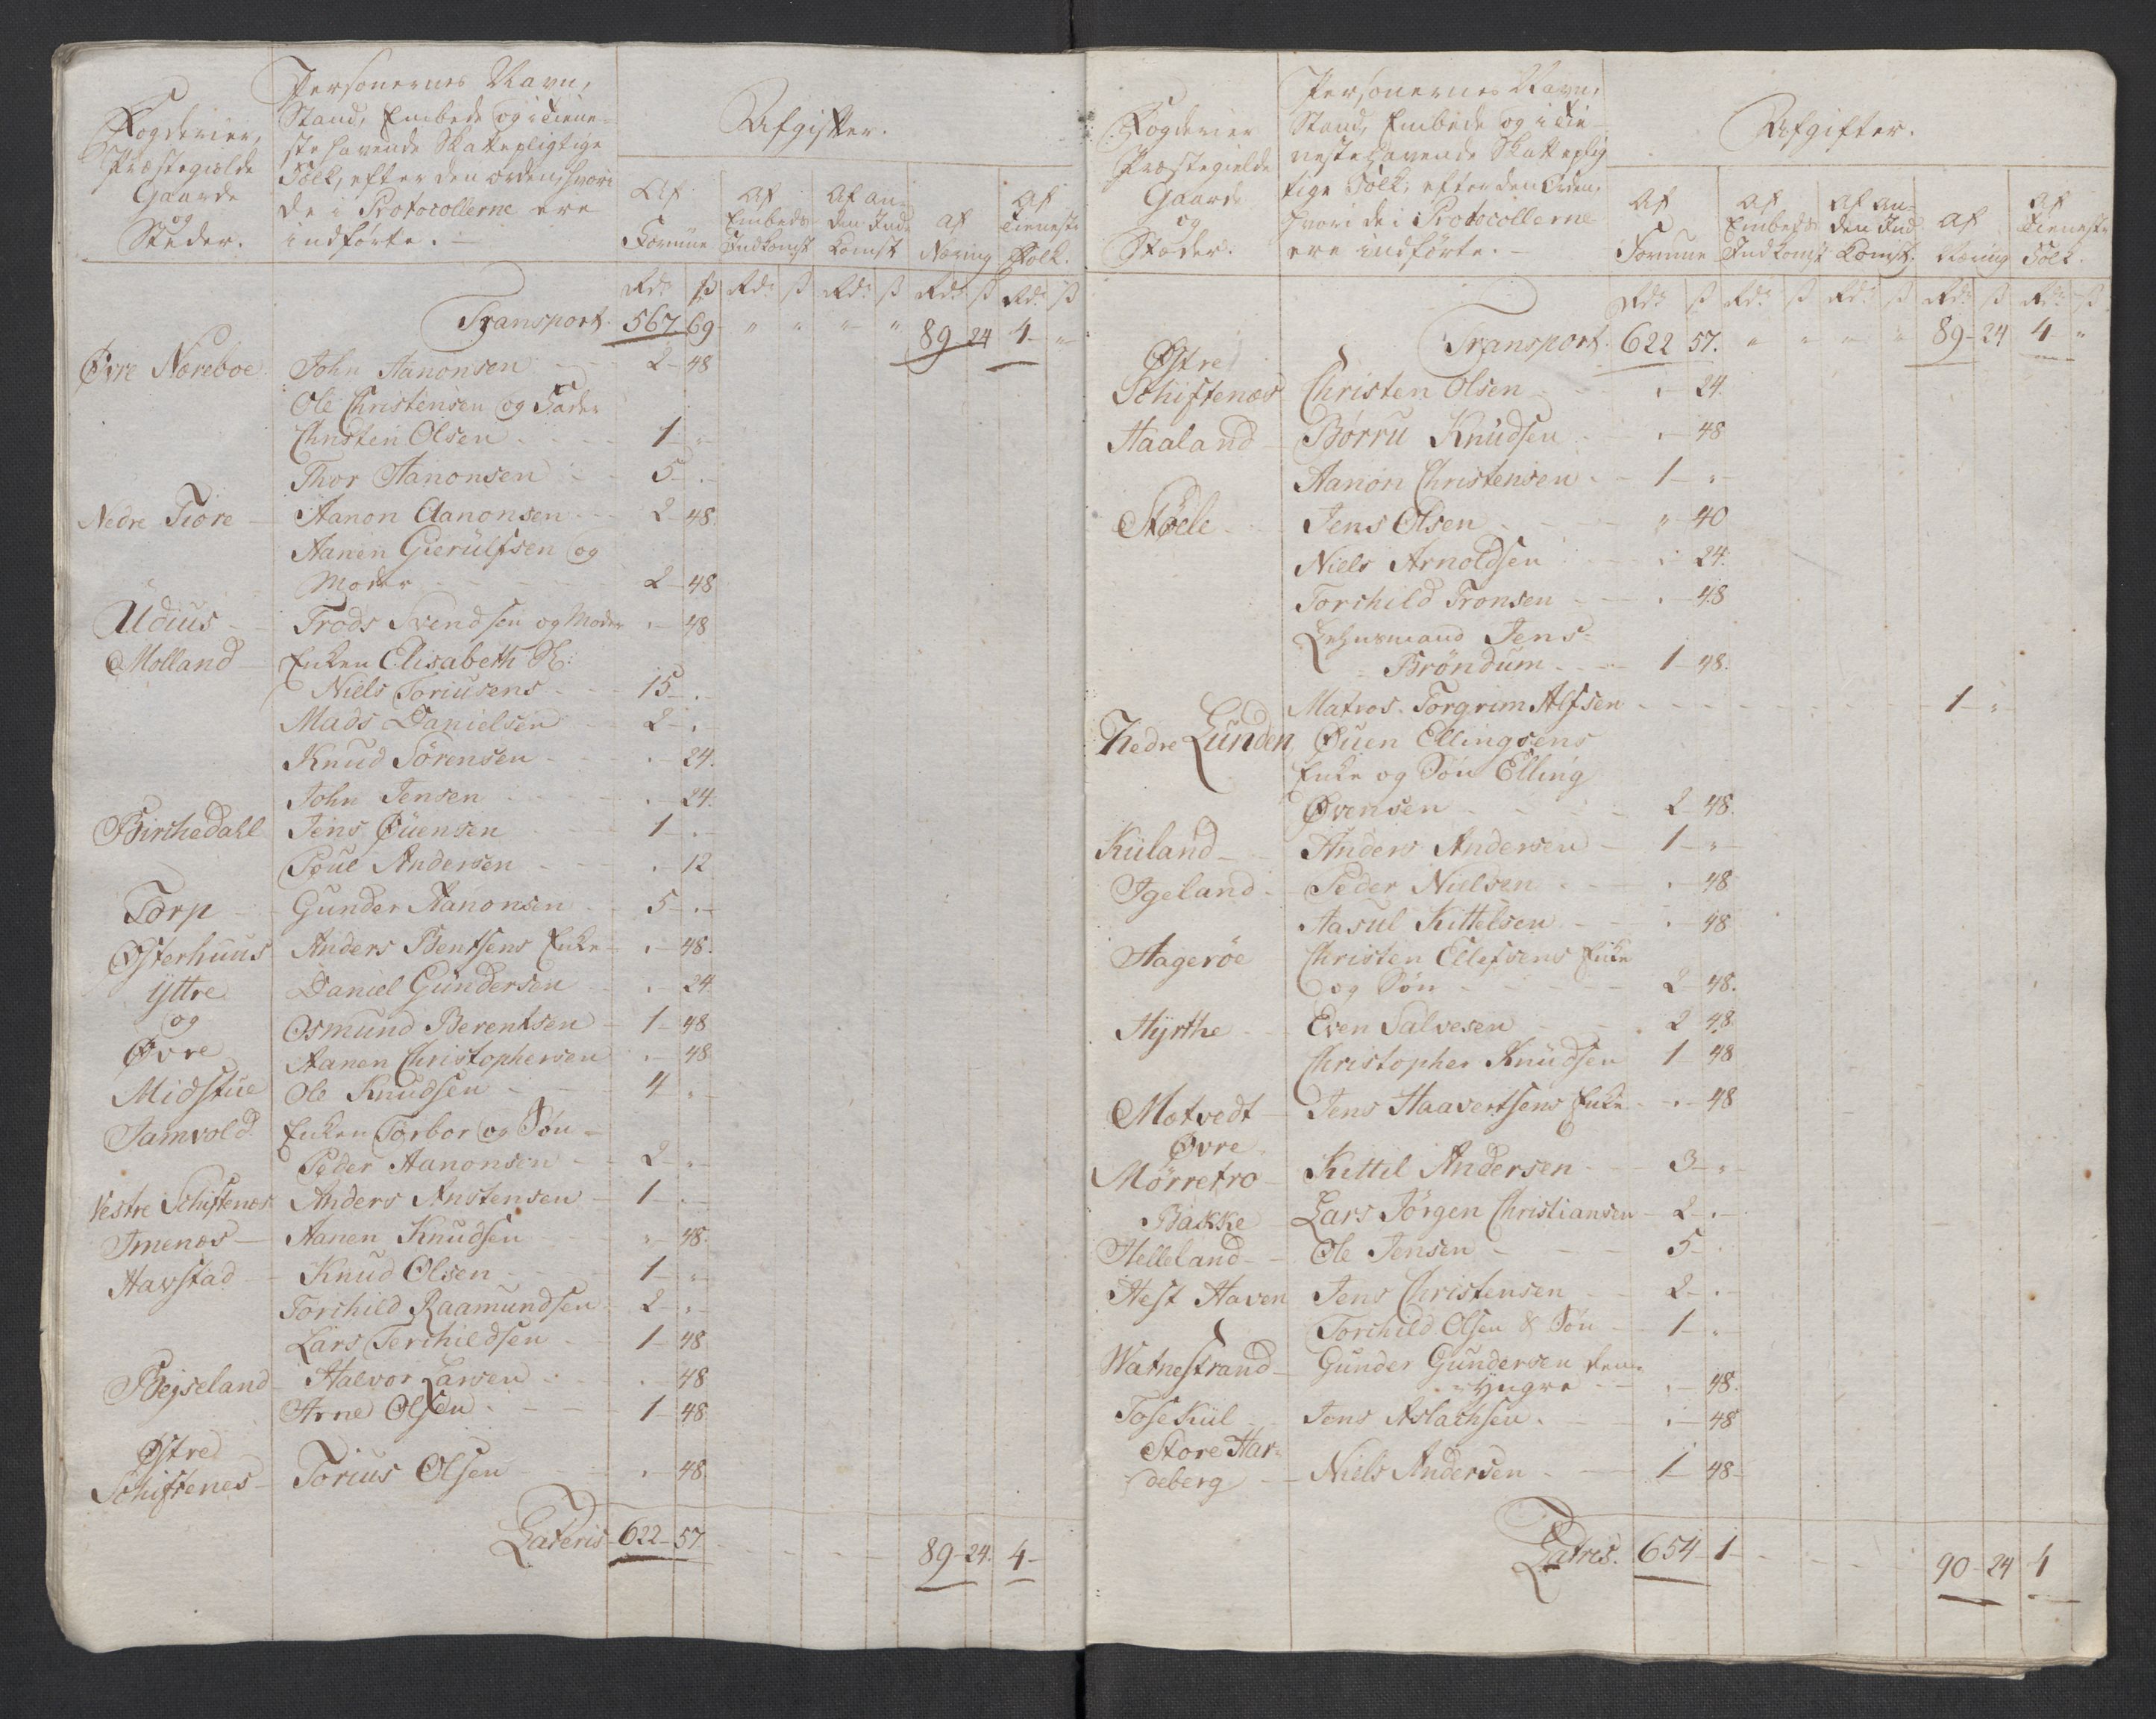 Fogderier,
Præstegielde
Gaarde
og
Stæder.
Personernes Navn,
Stand, Embede og i Tiene-
ste havende Skattepligtige
Folk, efter den Orden, hvori
de i Protocollerne ere
indførte. —
Afgifter.
Af Formue
Af Embeds Indkomst
Af an- den Ind- komst
af Næring
Af Tieneste Folk.
Rd. ß Rd. ß Rd. ß Rd. ß Rd. ß
Transport. 567 69 " " " " 89 24 4 "
Øvre Næreboe. John Aanonsen 2 48
Ole Christensen og Fader
Christen Olsen 1 "
Thor Aanonsen 5 "
Nedre Tiore Aanon Aanonsen 2 48
Aanen Gierülfsen og
Moder 2 48
Üdiüs Trods Svendsen og Moder " 48
Molland Enken Elisabeth Sl:
Niels Toriusens 15 "
Mads Danielsen 2 "
Knud Sörensen " 24.
John Jensen " 24.
Birchedahl Jens Øüensen 1 "
Poul Andersen " 12
Torp Gunder Aanonsen 5 "
Østerhuus Anders Bentsens Enke " 48.
Yttre Daniel Gündersen " 24
og Osmund Berentsen 1 48
Øvre Aanen Christophersen " 48
Midstüe Ole Knudsen 4 "
Jamvold Enken Torbor og Søn
Peder Aanonsen 2 "
Vestre Schiftenæs Anders Anstensen 1 "
Imenæs Aanen Knudsen " 48.
Havstad Knud Olsen 1 "
Torchild Raamundsen 2 "
Lars Terchildsen 1 48
Bejseland Halvor Larsen " 48
Arne Olsen 1 48
Østre
Schiftenes Torius Olsen " 48
Lateris 622 57 89 24. 4
Fogderier
Præstegielde
Gaarde
og
Stæder.
Personernes Navn,
Stand, Embede og i Tie-
nestehavende Skatteplig
tige Folk, efter den Orden,
hvori de i Protocollerne
ere indførte. —
Afgifter.
Af Formue
Af Embeds Indkomst
Af an- den Ind- komst.
af Næring
Af Tieneste Folk.
Rd. ß Rd. ß Rd. ß Rd. ß Rd. ß
Transport. 622 57. " " " " 89 24 4 "
Østre
Schiftenæs Christen Olsen " 24.
Haaland Børru Knüdsen " 48
Aanon Christensen 1 "
Støele Jens Olsen " 40
Niels Arnoldsen " 24.
Torchild Tronsen " 48
Lehnsmand Jens
Bröndum 1 48.
Matros Torgrim Alfsen 1 "
Nedre Lunden Øuen Ellingsens
Enke og Søn Elling
Øvensen 2 48.
Küland Anders Andersen 1 "
Igeland Peder Nielsen " 48
Aasul Kittelsen " 48
Hagerøe Christen Ellefsens Enke
og Søn 2 48.
Hyrthe Even Salvesen 2 48.
Christopher Knüdsen 1 48
Motvedt Jens Haavertsens Enke " 48
Øvre
Mørretro Kittil Andersen 3 "
Bakke Lars Jörgen Christiansen 2 "
Helleland Ole Jensen 5
Hest Haven Jens Christensen 2 "
Torchild Olsen & Søn 1 "
Watnestrand Gunder Gundersen den
yngre " 48.
Tosekiil Jens Aslachsen " 48
Store Har-
deberg Niels Andersen 1 48
Latris. 654 1 90 24 4